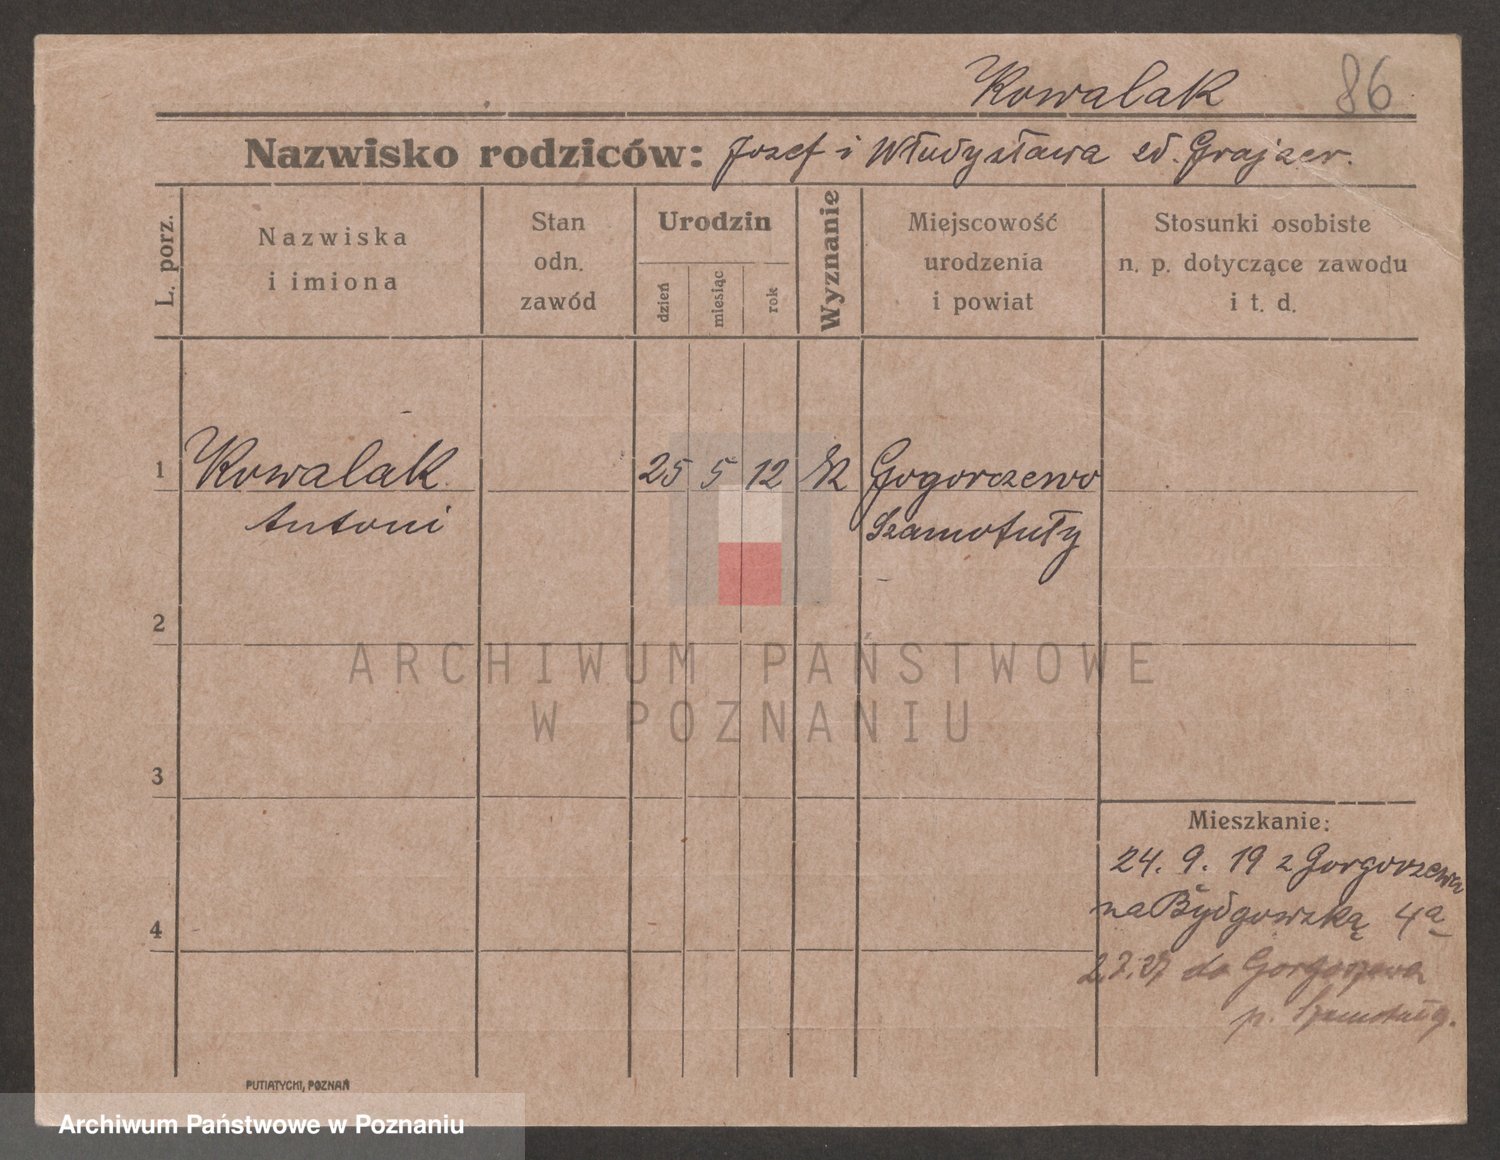 Kowalak 86
Nazwisko rodziców: Jozef i Władysława zd. Grajzer.
L. porz.
Nazwiska
i imiona
Stan
odn.
zawód
Urodzin
dzień
miesiąc
rok
Wyznanie
Miejscowość
urodzenia
i powiat
Stosunki osobiste
n. p. dotyczące zawodu
i t. d.
1 Kowalak 25 5 12 Gogorczewo
Antoni Szamotuły
2
ARCHIWUM PAŃSTWOWE
W POZNANIU
3
Mieszkanie:
24. 9. 19 z Gorgoszewa
na Bydgowską 4a
4
do Gorgoszewa
p. Szamotuły.
PUTIATYCKI, POZNAŃ
Archiwum Państwowe w Poznaniu